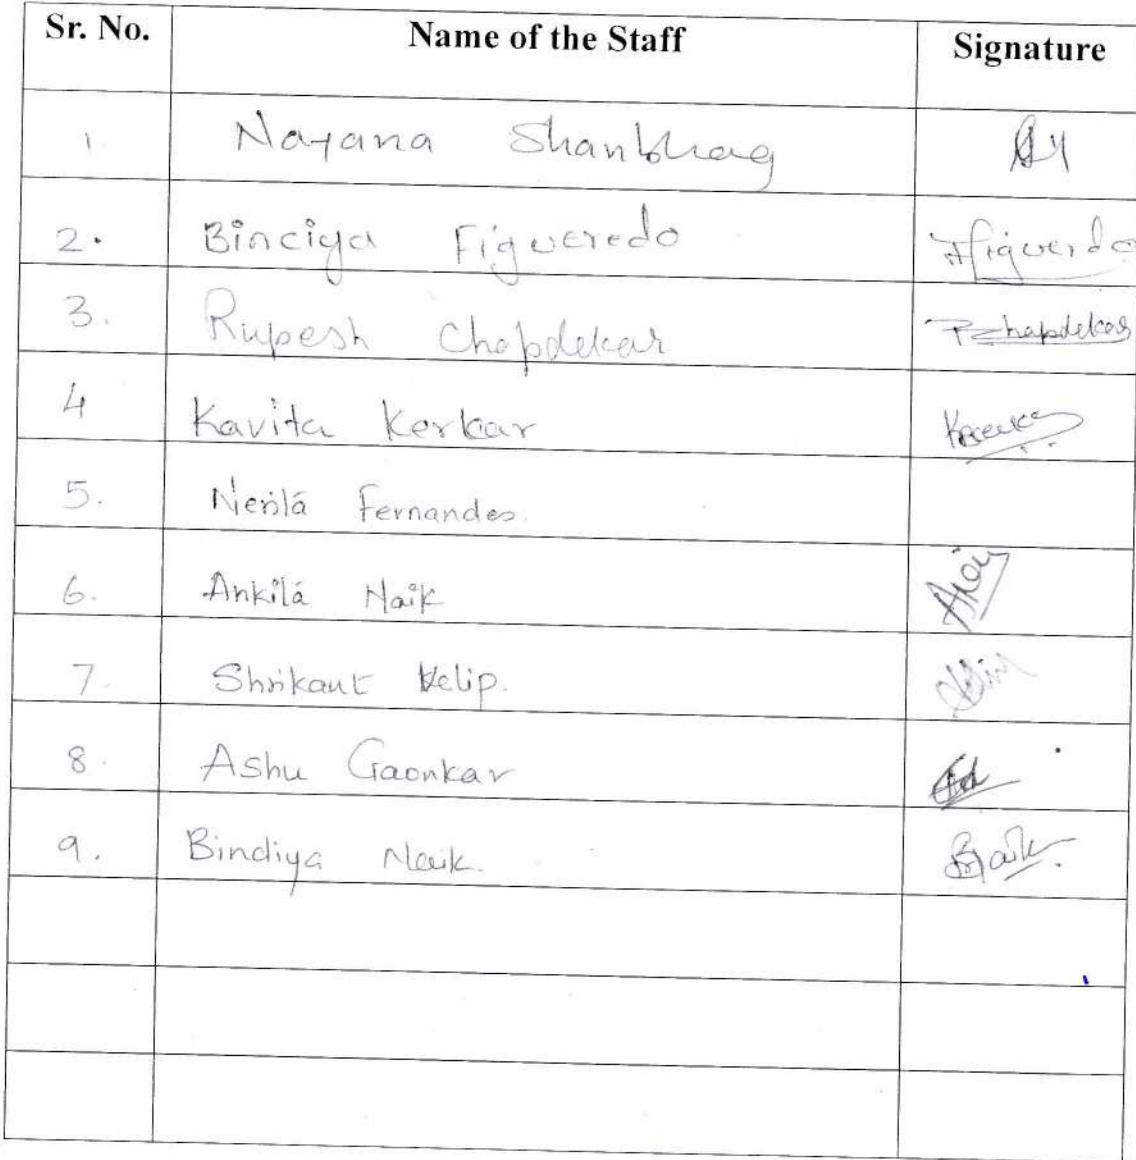 Sr. No. Name of the Staff Signature
1. Nayana Shanbhag
2. Binciya Figueredo Figuerdo
3. Rupesh Chapdekar Pchapdekar
4 Kavita Kerkar
5. Fernandes.
6. Naik
7. Shrikant Velip.
8. Ashu Gaonkar
9. Bindiya Naik. BNaik.